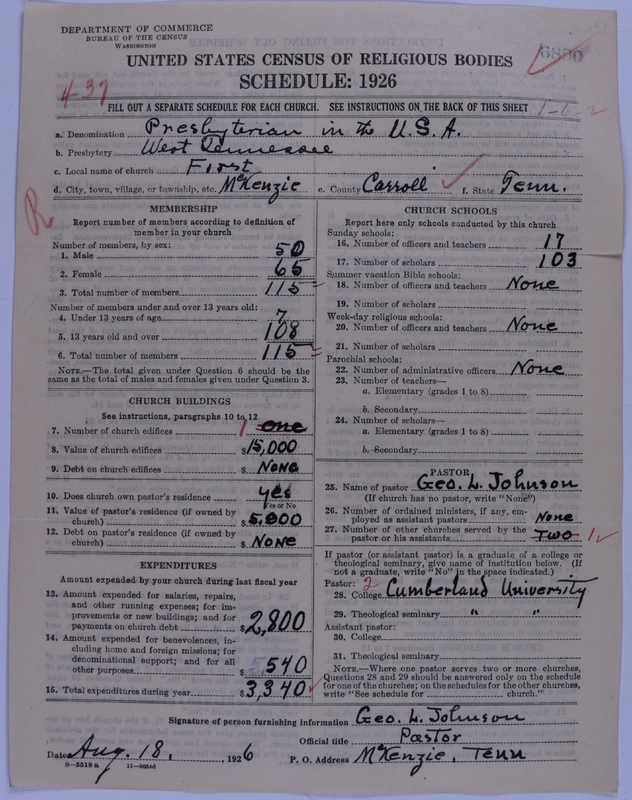 DEPARTMENT OF COMMERCE
BUREAU OF THE CENSUS
WASHINGTON
6890
UNITED STATES CENSUS OF RELIGIOUS BODIES
SCHEDULE: 1926
4-37
FILL OUT A SEPARATE SCHEDULE FOR EACH CHURCH. SEE INSTRUCTIONS ON THE BACK OF THIS SHEET
1-6-2
a. Denomination Presbyterian in the U.S.A.
b. Presbytery West Tennessee
c. Local name of church First
d. City, town, village, or township, etc. McKenzie e. County Carroll f. State Tenn.
R
MEMBERSHIP
Report number of members according to definition of
member in your church
Number of members, by sex:
1. Male 50
2. Female 65
3. Total number of members 115
Number of members under and over 13 years old:
4. Under 13 years of age 7
5. 13 years old and over 108
6. Total number of members 115
NOTE.—The total given under Question 6 should be the
same as the total of males and females given under Question 3.
CHURCH BUILDINGS
See instructions, paragraphs 10 to 12
7. Number of church edifices 1 one
8. Value of church edifices $15,000
9. Debt on church edifices $ None
10. Does church own pastor's residence yes
Yes or No
11. Value of pastor's residence (if owned by
church) $5,000
12. Debt on pastor's residence (if owned by
church) $ None
EXPENDITURES
Amount expended by your church during last fiscal year
13. Amount expended for salaries, repairs,
and other running expenses; for im-
provements or new buildings; and for
payments on church debt $2,800
14. Amount expended for benevolences, in-
cluding home and foreign missions; for
denominational support; and for all
other purposes $ 540
15. Total expenditures during year $3,340
CHURCH SCHOOLS
Report here only schools conducted by this church
Sunday schools:
16. Number of officers and teachers 17
17. Number of scholars 103
Summer vacation Bible schools:
18. Number of officers and teachers None
19. Number of scholars
Week-day religious schools:
20. Number of officers and teachers None
21. Number of scholars
Parochial schools:
22. Number of administrative officers None
23. Number of teachers—
a. Elementary (grades 1 to 8)
b. Secondary
24. Number of scholars—
a. Elementary (grades 1 to 8)
b. Secondary
PASTOR
25. Name of pastor Geo. L. Johnson
(If church has no pastor, write "None")
26. Number of ordained ministers, if any, em-
ployed as assistant pastors None
27. Number of other churches served by the
pastor or his assistants Two 1
If pastor (or assistant pastor) is a graduate of a college or
theological seminary, give name of institution below. (If
not a graduate, write "No" in the space indicated.)
Pastor: 2
28. College Cumberland University
29. Theological seminary " "
Assistant pastor:
30. College
31. Theological seminary
NOTE.—Where one pastor serves two or more churches,
Questions 28 and 29 should be answered only on the schedule
for one of the churches; on the schedules for the other churches,
write "See schedule for church."
Signature of person furnishing information Geo. L. Johnson
Official title Pastor
Date Aug. 18, 1926 P. O. Address McKenzie, Tenn
8—5318a